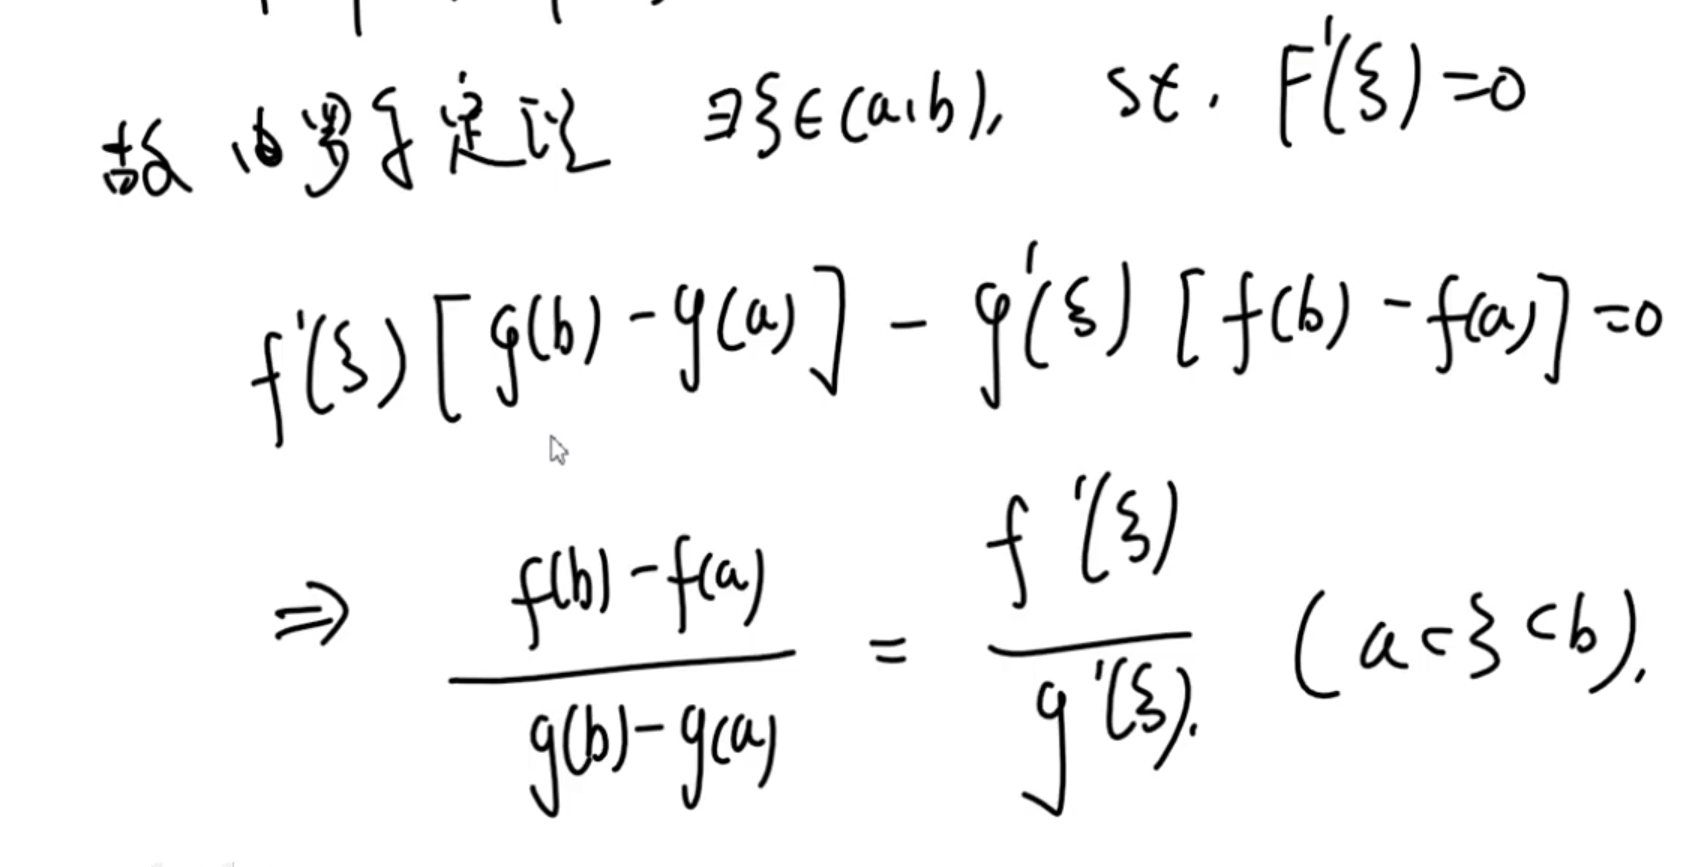 故 由罗尔定理 ∃ξ∈(a,b), st. F'(ξ)=0
f'(ξ)[g(b)-g(a)] - g'(ξ)[f(b)-f(a)]=0
⇒ \frac{f(b)-f(a)}{g(b)-g(a)} = \frac{f'(ξ)}{g'(ξ).} (a<ξ<b).